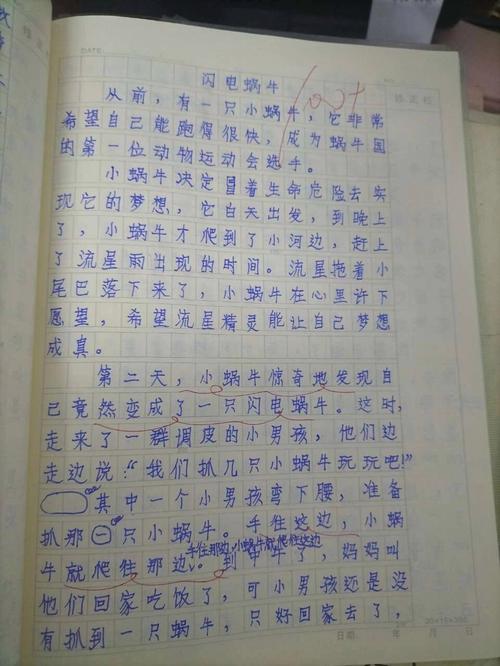 DATE:
闪电蜗牛
100+
从前，有一只小蜗牛，它非常
希望自己能跑得很快，成为蜗牛国
的第一位动物运动会选手。
小蜗牛决定冒着生命危险去实
现它的梦想，它白天出发，到晚上
了，小蜗牛才爬到了小河边，赶上
了流星雨出现的时间。流星拖着小
尾巴落下来了，小蜗牛在心里许下
愿望，希望流星精灵能让自己梦想
成真。
第二天，小蜗牛惊奇地发现自
己竟然变成了一只闪电蜗牛。这时，
走来了一群调皮的小男孩，他们边
走边说：“我们抓几只小蜗牛玩玩吧！”
其中一个小男孩弯下腰，准备
抓那一只小蜗牛。手往这边，小蜗
手往那边，小蜗牛就爬住这边
牛就爬住那边。到中午了，妈妈叫
他们回家吃饭了，可小男孩还是没
有抓到一只蜗牛，只好回家去了，
20×15=300
日期 年 月 日